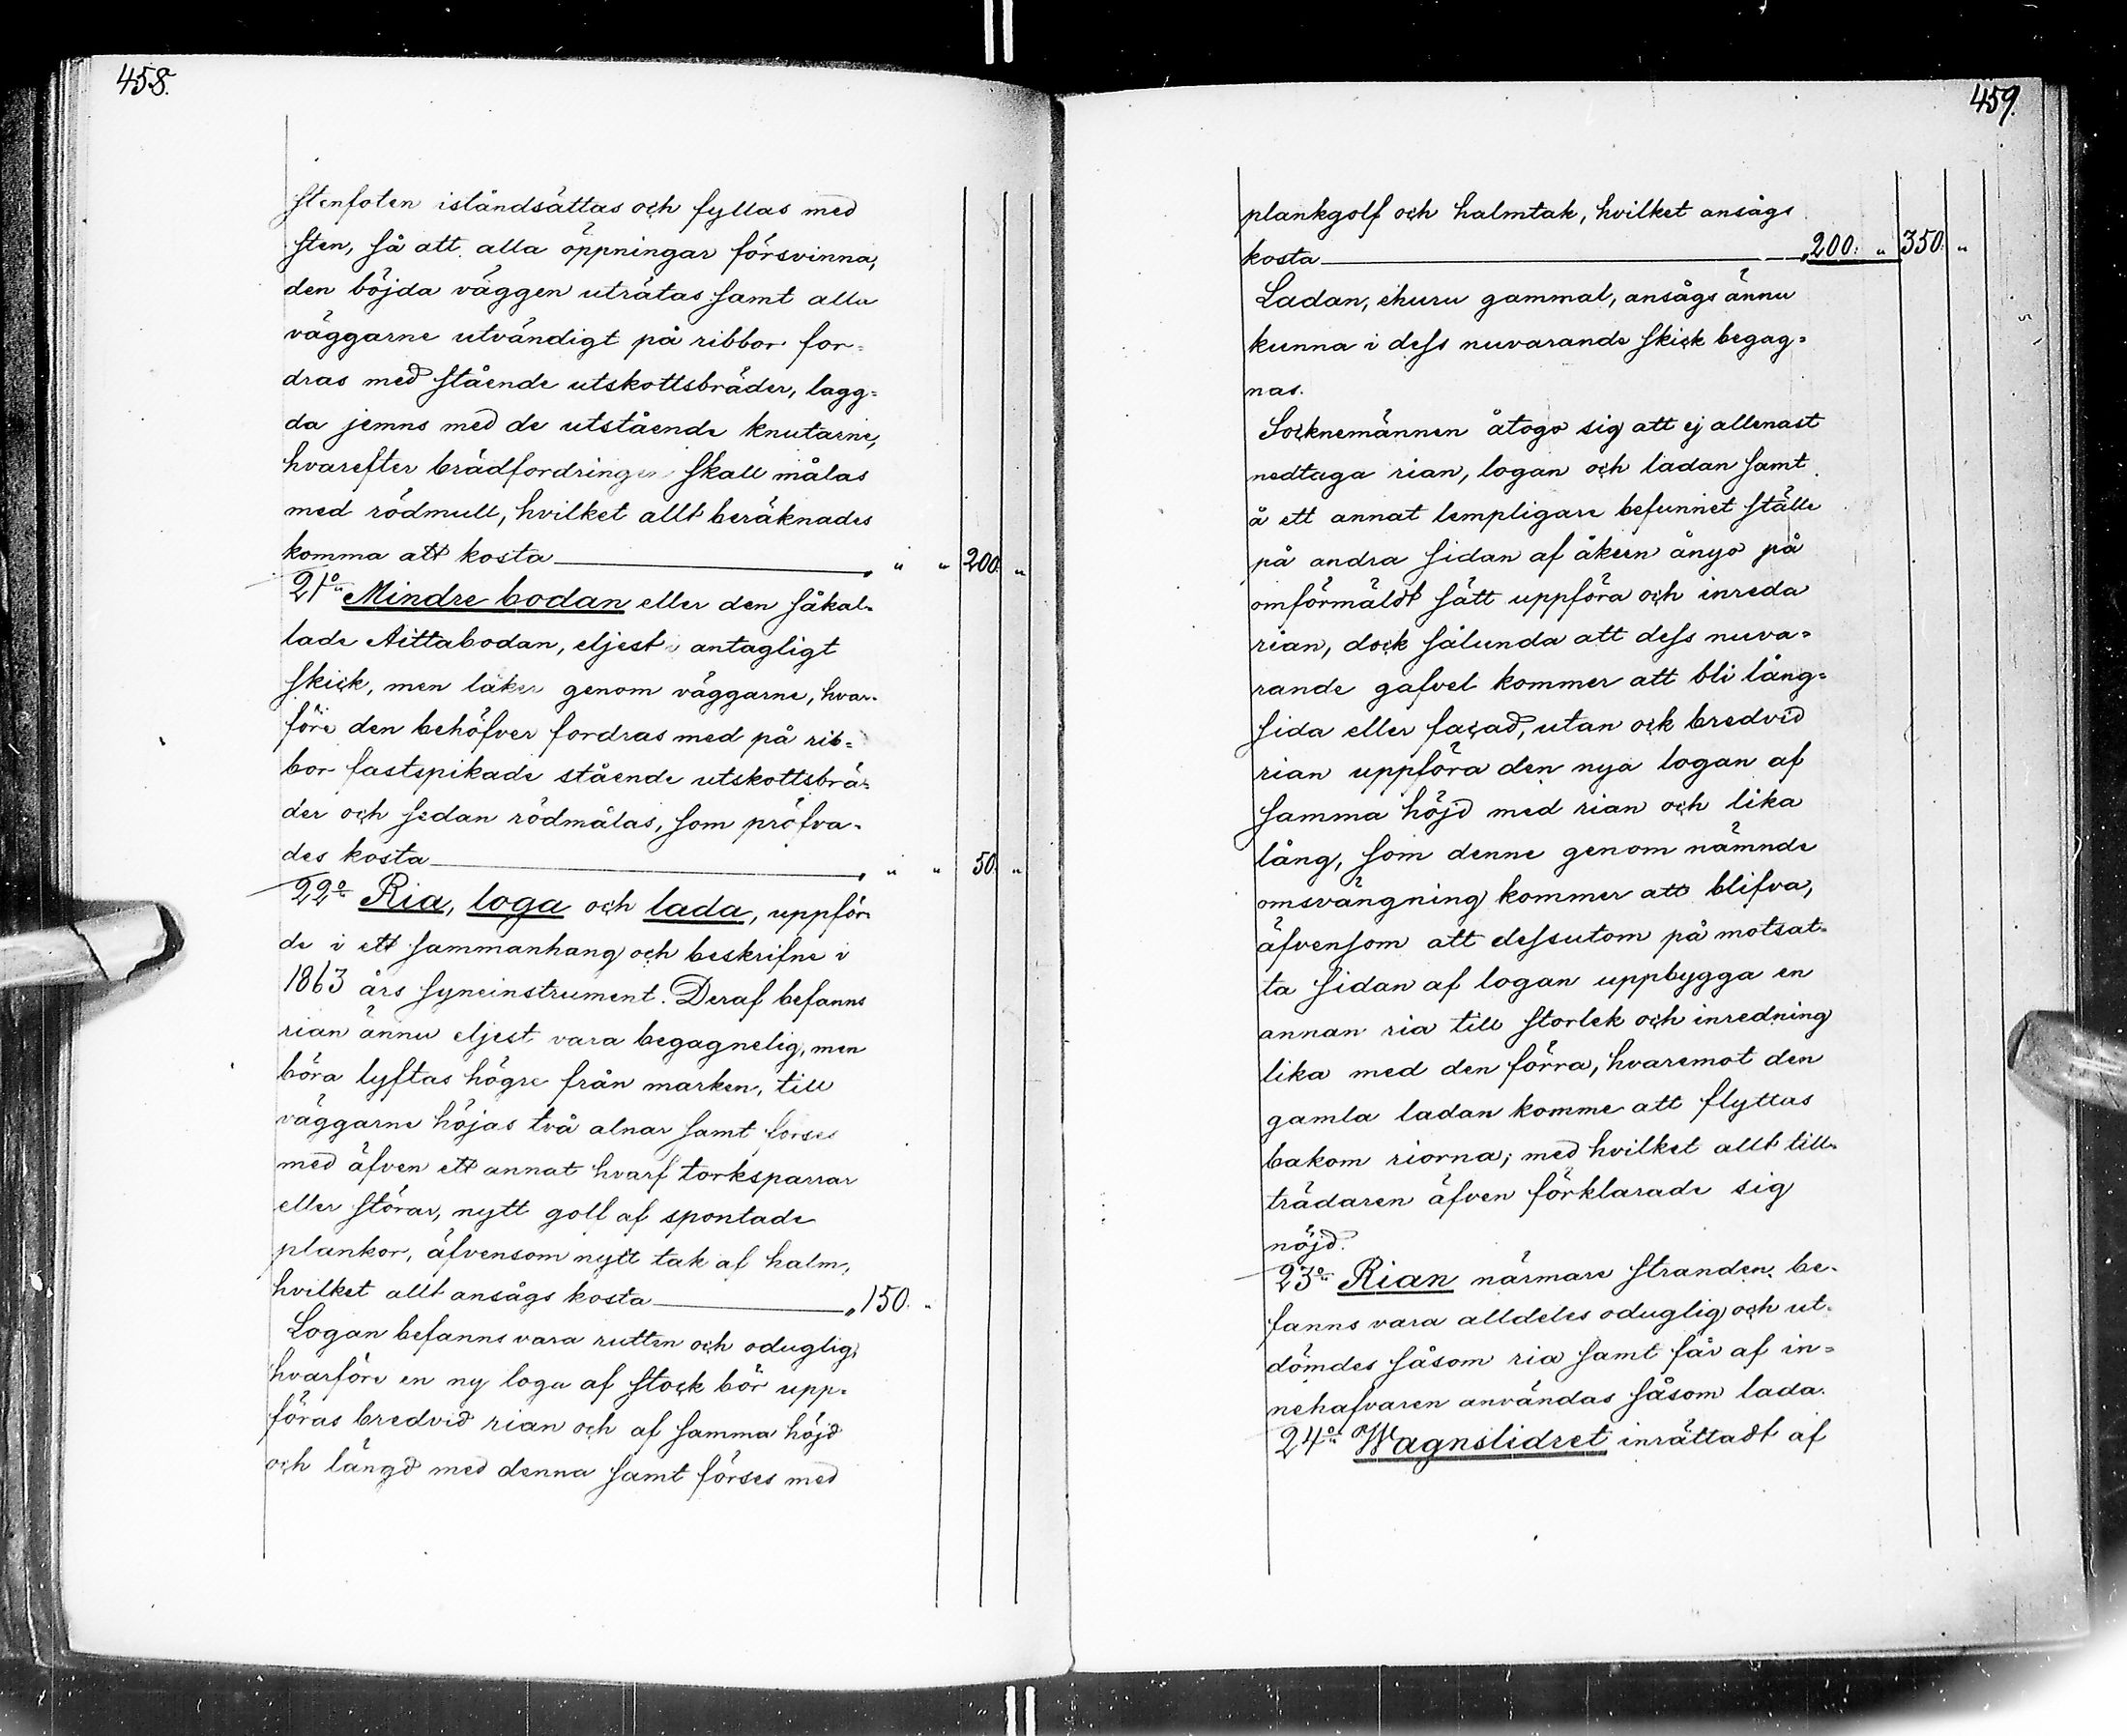 458.
stenfoten iståndsättas och fyllas med
sten, så att alla öppningar försvinna,
den böjda väggen uträtas samt alla
väggarne utvändigt på ribbor for=
dras med stående utskottsbräder, lagg=
da jemns med de utstående knutarne,
hvarefter brädfordringen skall målas
med rödmull, hvilket allt beräknades
komma att kosta „ „ 200. „
21:o Mindre bodan eller den såkal=
lade Aittabodan, eljest i antagligt
skick, men läker genom väggarne, hvar=
före den behöfver fordras med på rib=
bor fastspikade stående utskottsbrä=
der och sedan rödmålas, som pröfva=
des kosta „ „ 50. „
22:o Ria, loga och lada, uppför=
de i ett sammanhang och beskrifne i
1863 års syneinstrument. Deraf befanns
rian ännu eljest vara begagnelig, men
böra lyftas högre från marken, till
väggarne höjas två alnar samt förses
med äfven ett annat hvarf torksparrar
eller störar, nytt golf af spontade
plankor, äfvensom nytt tak af halm,
hvilket allt ansågs kosta „ 150. „
Logan befanns vara rutten och oduglig,
hvarföre en ny loga af stock bör upp=
föras bredvid rian och af samma höjd
och längd med denna samt förses med
459.
plankgolf och halmtak, hvilket ansågs
kosta „ 200: „ 350. „
Ladan, ehuru gammal, ansågs ännu
kunna i dess nuvarande skick begag=
nas.
Socknemännen åtogo sig att ej allenast
nedtaga rian, logan och ladan samt
å ett annat lempligare befunnet ställe
på andra sidan af åkern ånyo på
omförmäldt sätt uppföra och inreda
rian, dock sålunda att dess nuva=
rande gafvel kommer att bli lång=
sida eller façad, utan ock bredvid
rian uppföra den nya logan af
samma höjd med rian och lika
lång, som denne genom nämnde
omsvängning kommer att blifva,
äfvensom att dessutom på motsat=
ta sidan af logan uppbygga en
annan ria till storlek och inredning
lika med den förra, hvaremot den
gamla ladan komme att flyttas
bakom riorna; med hvilket allt till=
trädaren äfven förklarade sig
nöjd.
23:o Rian närmare stranden be=
fanns vara alldeles oduglig och ut=
dömdes såsom ria samt får af in=
nehafvaren användas såsom lada.
24:o Wagnslidret inrättadt af